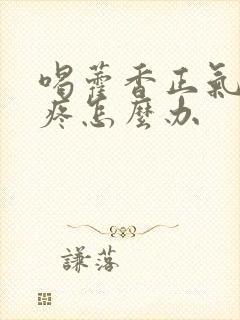 喝藿香正氣
疼怎麼办
謙落